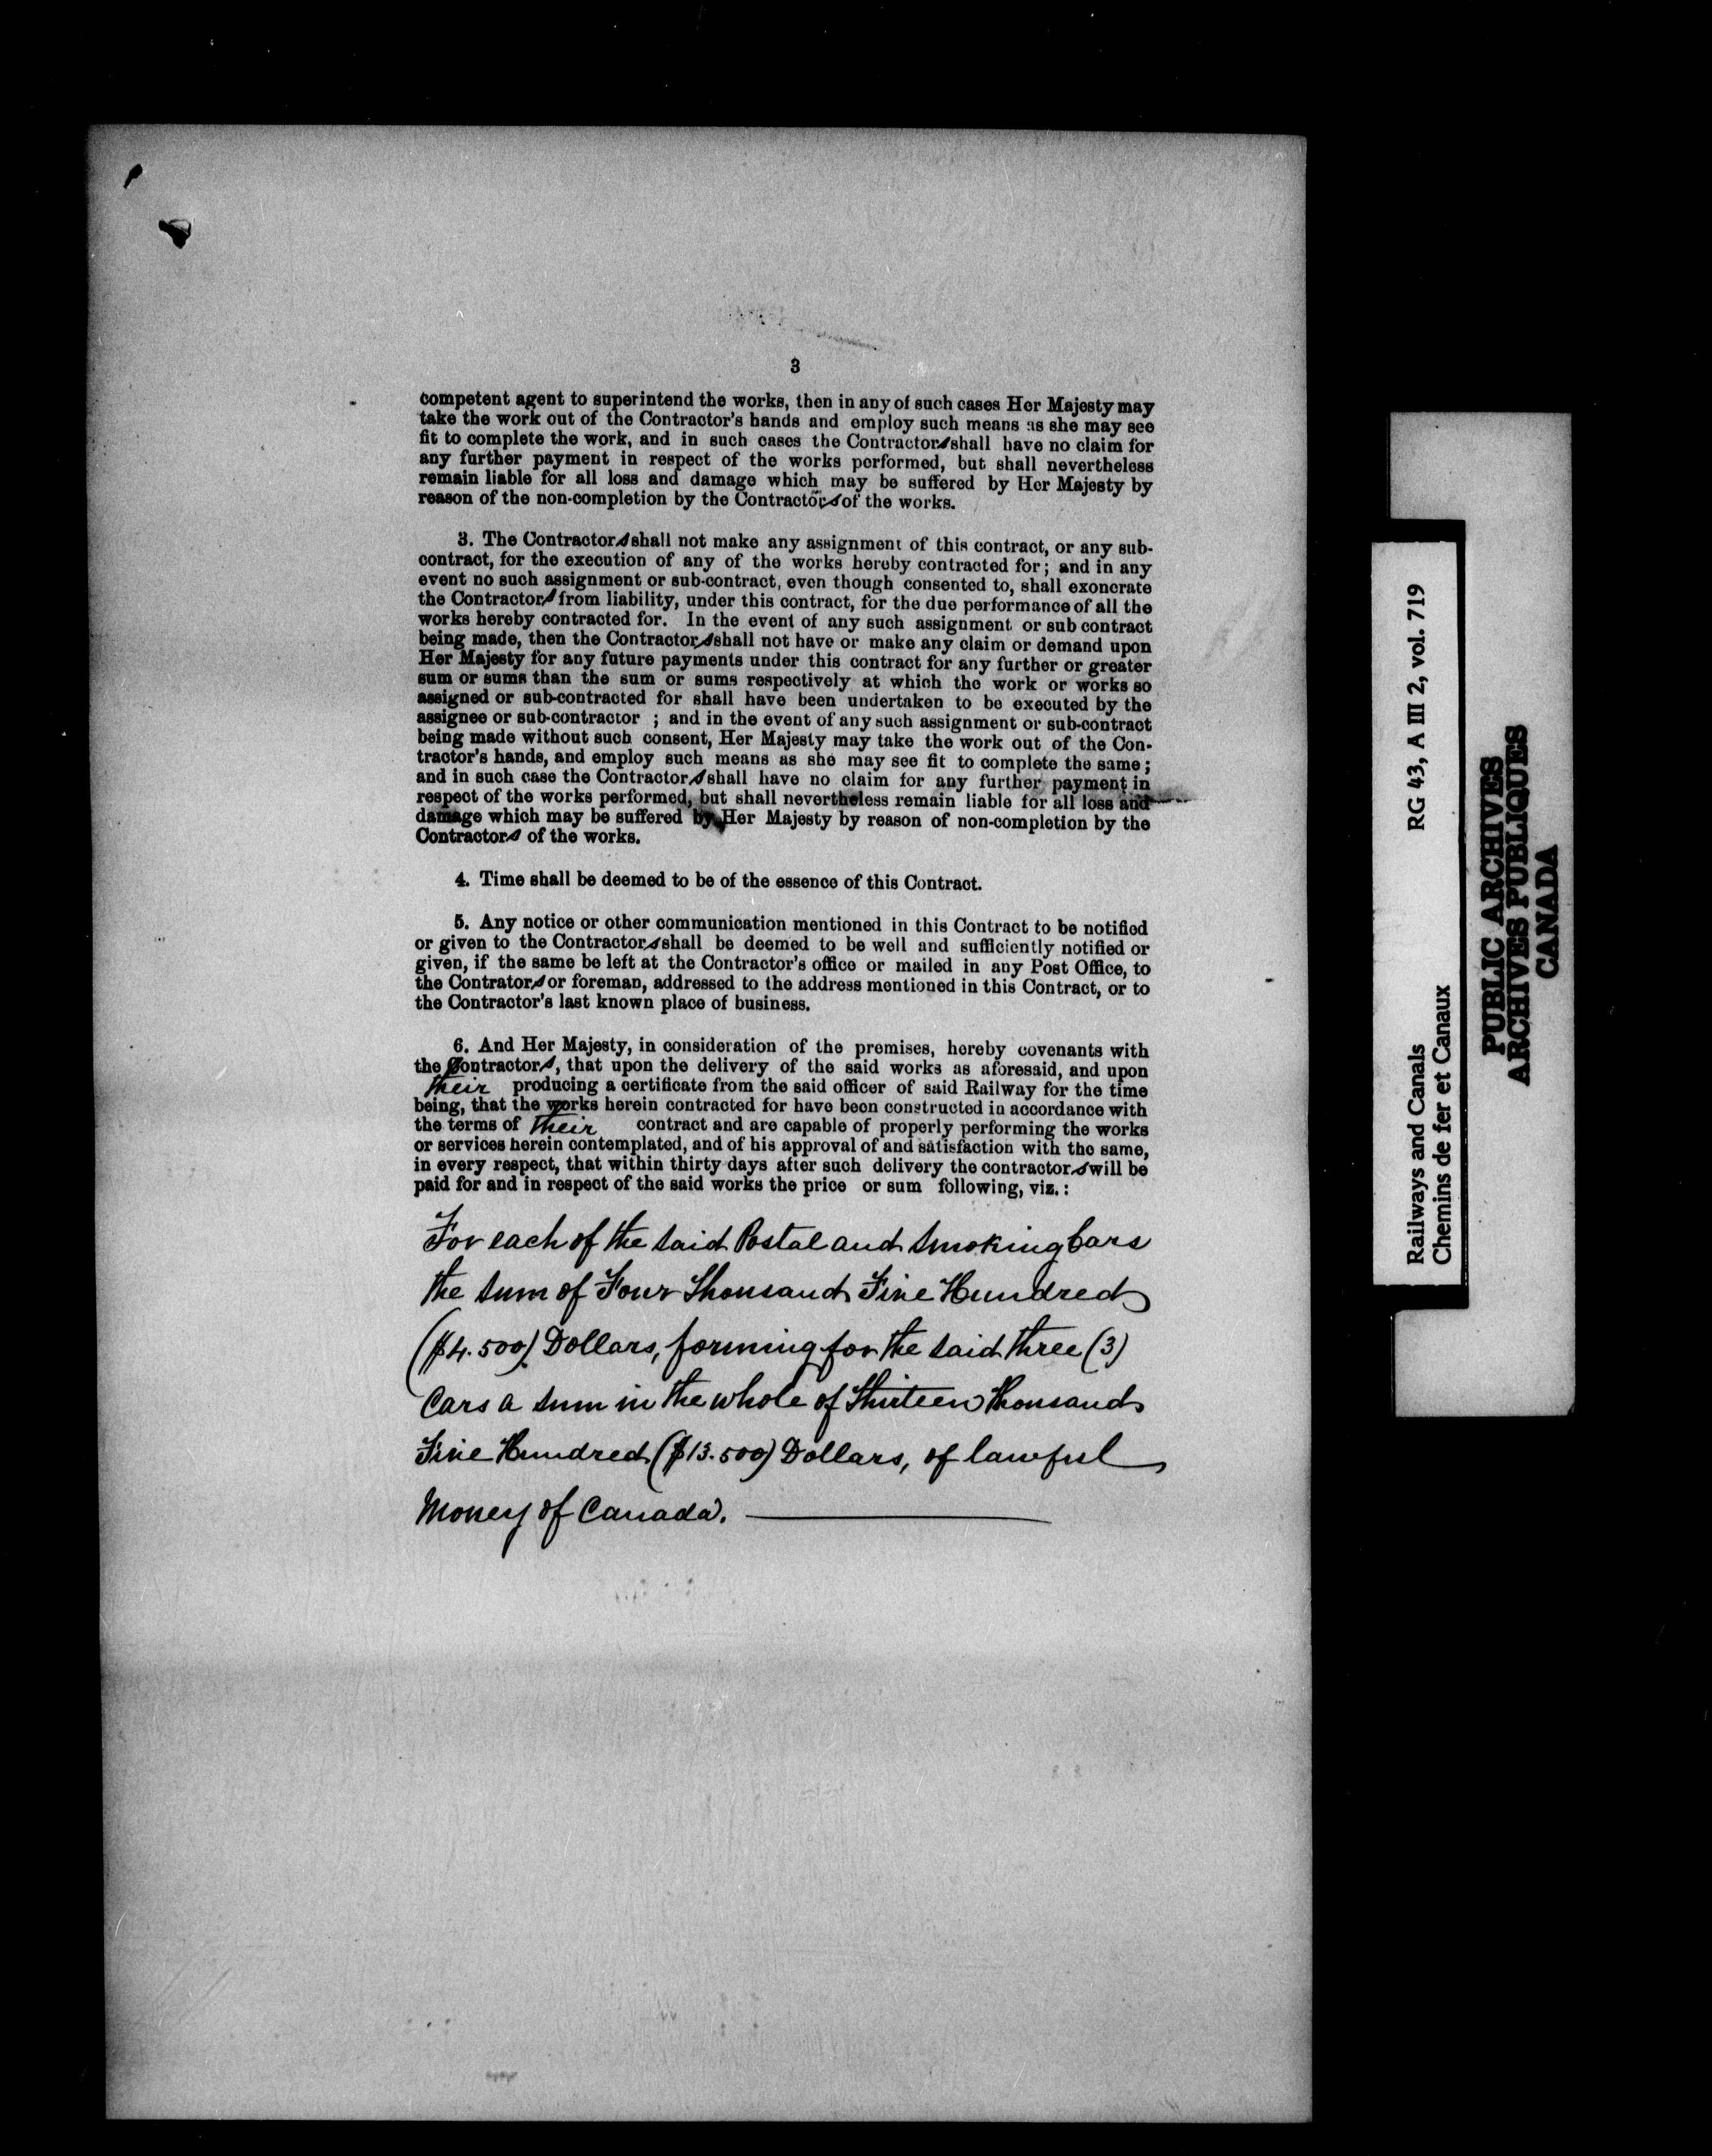 3
competent agent to superintend the works, then in any of such cases Her Majesty may
take the work out of the Contractor's hands and employ such means as she may see
fit to complete the work, and in such cases the Contractors shall have no claim for
any further payment in respect of the works performed, but shall nevertheless
remain liable for all loss and damage which may be suffered by Her Majesty by
reason of the non-completion by the Contractors of the works.
3. The Contractors shall not make any assignment of this contract, or any sub-
contract, for the execution of any of the works hereby contracted for; and in any
event no such assignment or sub-contract, even though consented to, shall exonerate
the Contractors from liability, under this contract, for the due performance of all the
works hereby contracted for. In the event of any such assignment or sub contract
being made, then the Contractors shall not have or make any claim or demand upon
Her Majesty for any future payments under this contract for any further or greater
sum or sums than the sum or sums respectively at which the work or works so
assigned or sub-contracted for shall have been undertaken to be executed by the
assignee or sub-contractor ; and in the event of any such assignment or sub-contract
being made without such consent, Her Majesty may take the work out of the Con-
tractor's hands, and employ such means as she may see fit to complete the same;
and in such case the Contractors shall have no claim for any further payment in
respect of the works performed, but shall nevertheless remain liable for all loss and
damage which may be suffered by Her Majesty by reason of non-completion by the
Contractors of the works.
4. Time shall be deemed to be of the essence of this Contract.
5. Any notice or other communication mentioned in this Contract to be notified
or given to the Contractors shall be deemed to be well and sufficiently notified or
given, if the same be left at the Contractor's office or mailed in any Post Office, to
the Contrators or foreman, addressed to the address mentioned in this Contract, or to
the Contractor's last known place of business.
6. And Her Majesty, in consideration of the premises, hereby covenants with
the Contractors, that upon the delivery of the said works as aforesaid, and upon
their producing a certificate from the said officer of said Railway for the time
being, that the works herein contracted for have been constructed in accordance with
the terms of their contract and are capable of properly performing the works
or services herein contemplated, and of his approval of and satisfaction with the same,
in every respect, that within thirty days after such delivery the contractors will be
paid for and in respect of the said works the price or sum following, viz.:
For each of the said Postal and Smoking Cars
the sum of Four Thousand Five Hundred
($4.500) Dollars, forming for the said three (3)
Cars a sum in the whole of Thirteen Thousand
Five Hundred ($13.500) Dollars, of lawful
Money of Canada.
Railways and Canals RG 43, A III 2, vol. 719
Chemins de fer et Canaux
PUBLIC ARCHIVES
ARCHIVES PUBLIQUES
CANADA